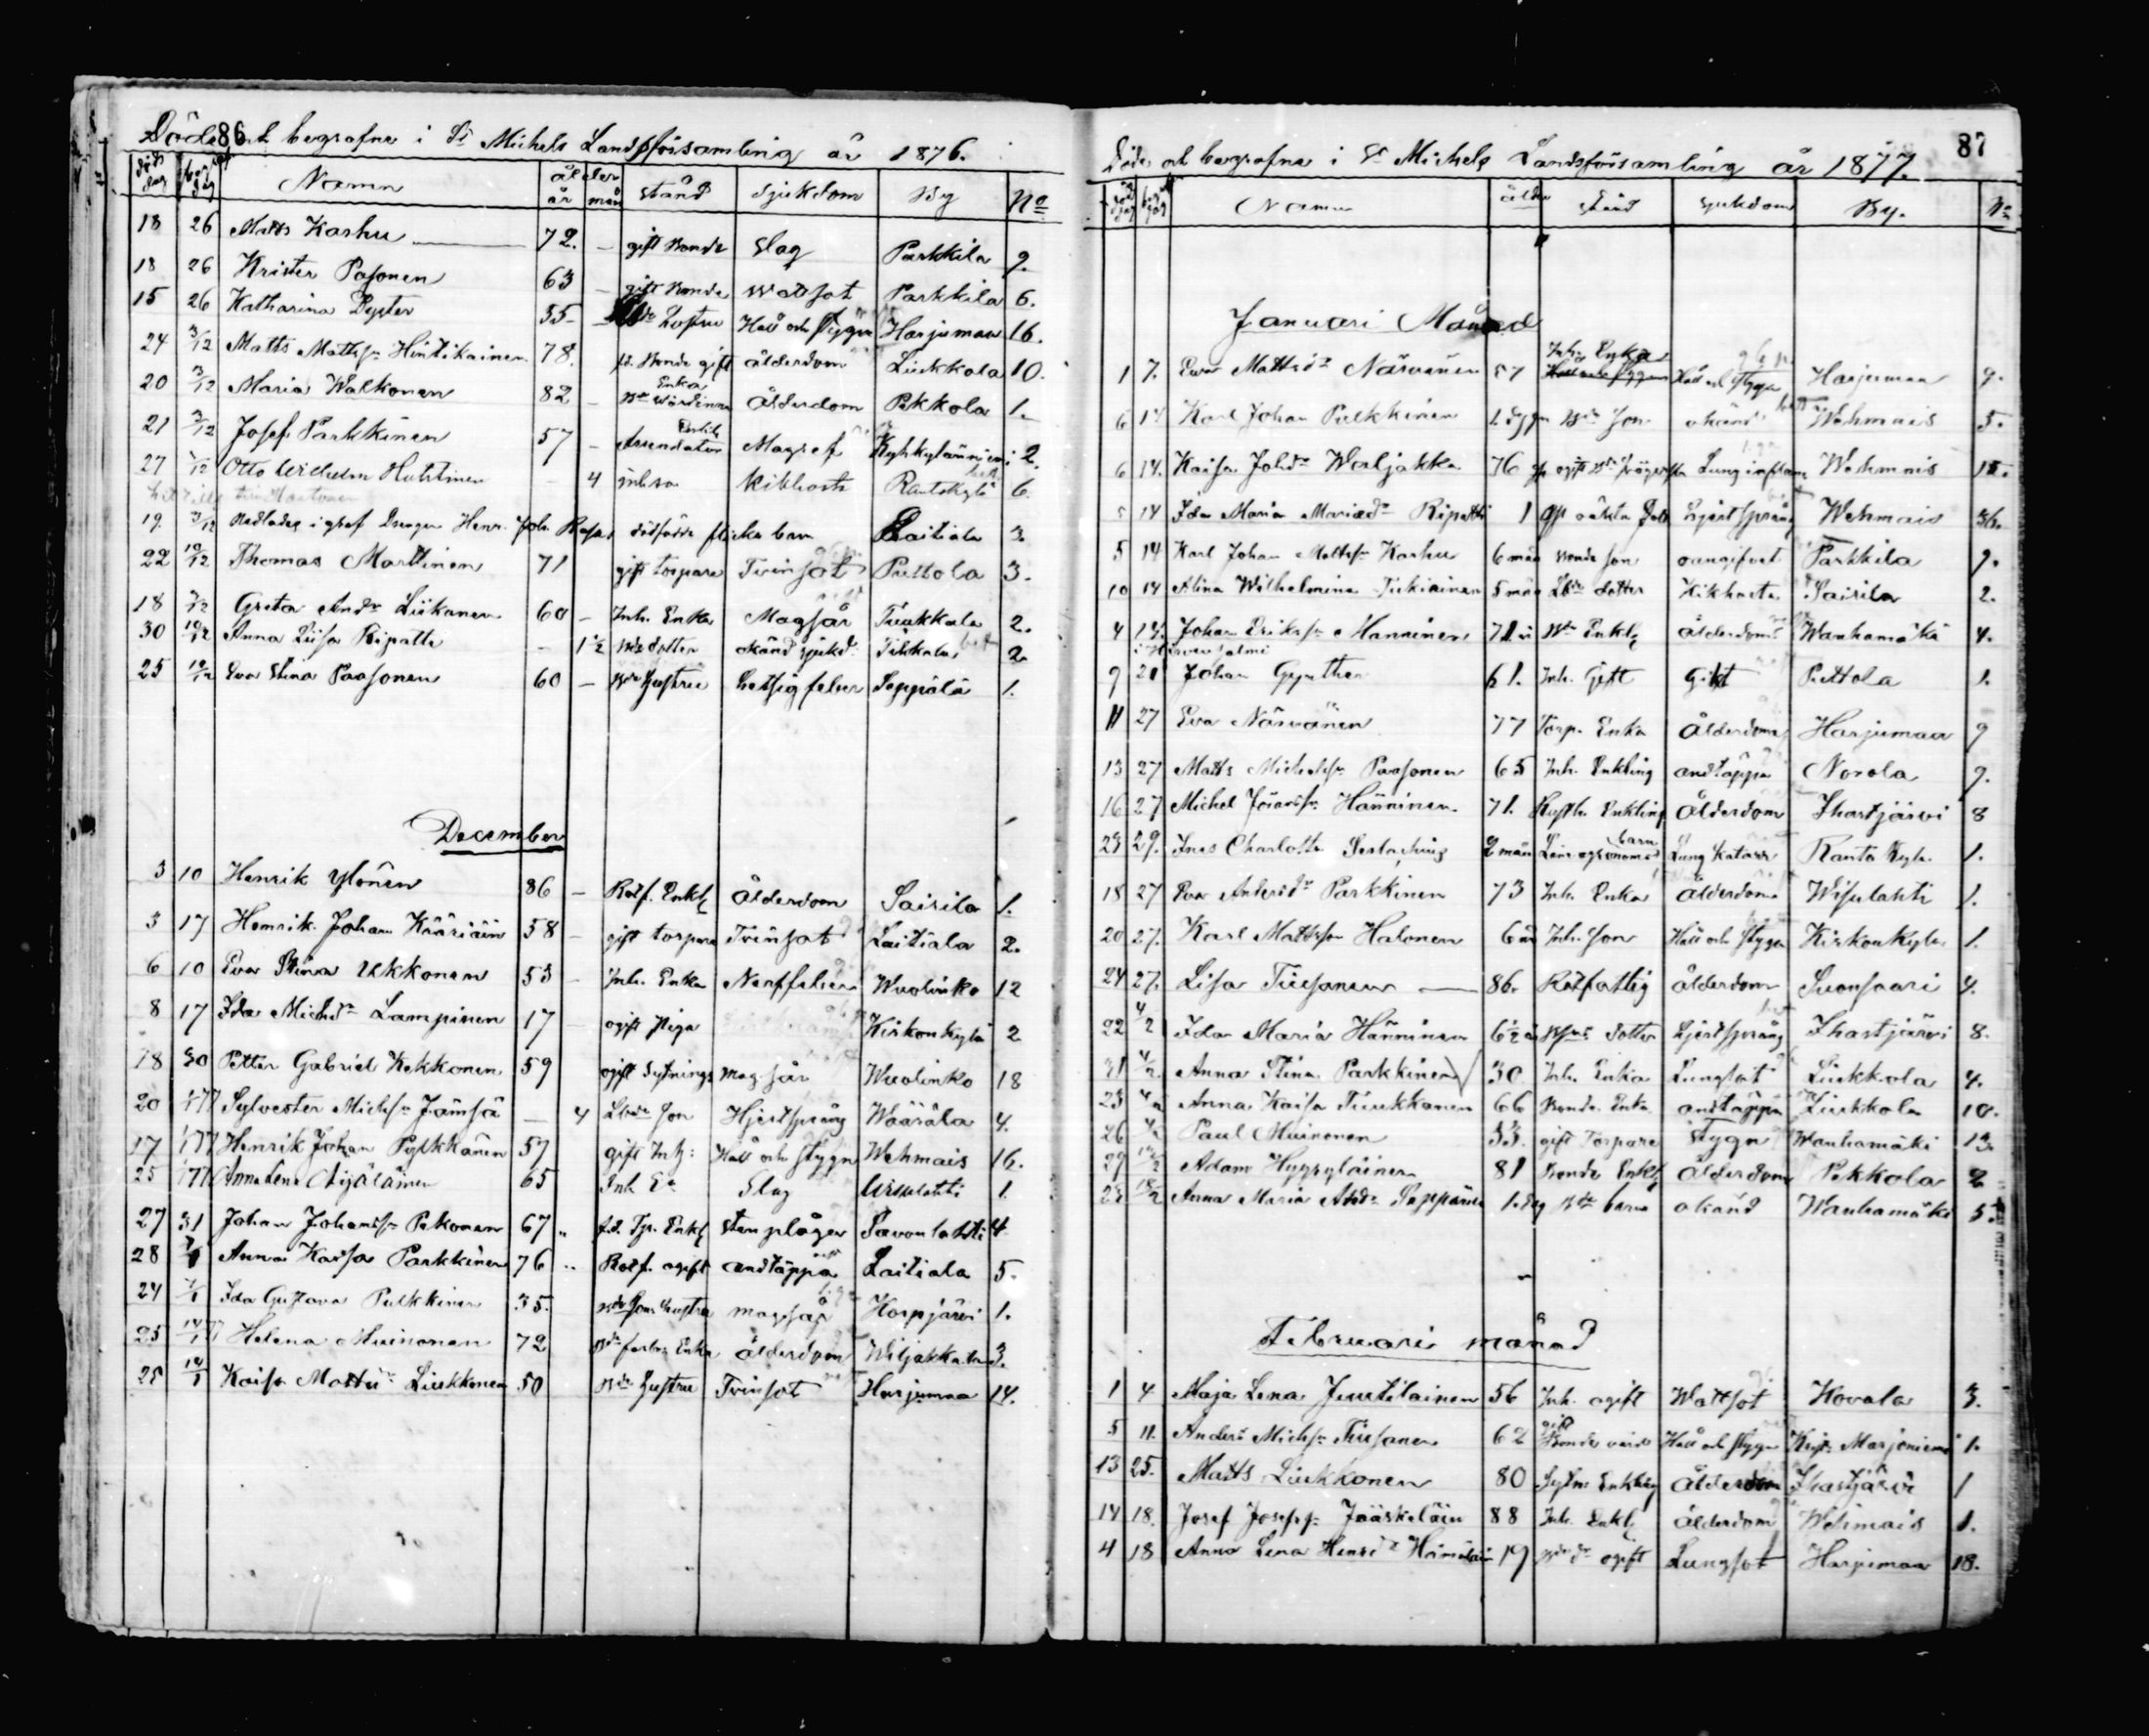 86
Döde och begrafne i St Michels Landsförsamling år 1876.
döds dag begr. dag Namn ålder år mån stånd sjukdom By No
18 26 Matts Karhu 72. — gift Bonde Slag Parkkila 9.
18 26 Krister Pasonen 63 — gift Bonde Wattsot Parkkila 6.
15 26 Katharina 55 — hustru Håll och stygn Harjumaa 16.
24 3/12 Matts Mattsn Hintikainen 78. fd. Bonde gift ålderdom Liukkola 10.
20 3/12 Maria Walkonen 82 — Enka Wärdinna Ålderdom Pekkola 1.
21 3/12 Josef Parkkinen 57 — Arendator Enkl Magref Kyhkylänniemi 2.
27 /12 Otto Wilhelm Huhtinen — 4 inh son Kikhosta Rantakylä 6.
19 3/12 Nedlades i graf Drengen Henr. Joh. dödfödde flicke barn Laitiala 3.
22 10/12 Thomas Marttinen 71 gift torpare Tvinsot Puttola 3.
18 /12 Greta Andr Liikanen 60 — Inh. Enka Magsår Tuukkala 2.
30 10/12 Anna Liisa Ripatti — 1½ Bds dotter okänd sjukd. Tikkala 2
25 10/12 Eva Stina Paasonen 60 — Bds Hustru hetsig feber Seppälä 1.
December
3 10 Henrik Ylönen 86 — Rotf. Enkl Ålderdom Sairila 1.
3 17 Henrik Johan Kääriäin 58 — gift torpare Tvinsot Laitiala 2.
6 10 Eva Stina Ukkonen 53 — Inh. Enka Nerffeber Wuolinko 12
8 17 Ida Michdr Lampinen 17 — ogift Piga Kirkonkylä 2
18 30 Petter Gabriel Kekkonen 59 ogift Sytnings mag sår Wuolinko 18
20 1/77 Sylvester Michsn Jämsä — 4 Lbde son Hjertsprång Wäärälä 4.
17 1/77 Henrik Johan Pylkkänen 57 gift Inh: Håll och stygn Wehmais 16.
25 1/77 Anna Lena 65 Inh Ea Slag Wisulahti 1.
27 31 Johan Johansn Pekonen 67 „ fd. Tp. Enkl sten plågor Savonlahti 4
28 7/1 Anna Kaisa Parkkinen 76 „ Rotf. ogift andtäppa Laitiala 5.
24 7/1 Ida Gustava Pulkkinen 35. Bds sons hustru magsår Horpjärvi 1.
25 14/1 Helena Muinonen 72 Bds farbr. Enka ålderdom Wiljakkala 3.
25 14/1 Kaisa Mattsdr Liukkonen 50 Bds Hustru Tvinsot Harjumaa 14.
87
Döde och begrafne i St Michels Landsförsamling år 1877.
död dag begr dag Namn ålder stånd sjukdom By. No
Januari Månad
1 7. Eva Mattsdr Närvänen 57 Inh. Enka Håll och stygn Harjumaa 9.
6 14 Karl Johan Pulkkinen 2 dygn Bds son okänd Wehmais 5.
6 14. Kaisa Johdr Waljakka 76 Lung inflam Wehmais 15.
5 14 Ida Maria Mariædr Ripatti 1 oäkta Hjertsprång Wehmais 36.
5 14 Karl Johan Mattsn Karhu 6 mån Bonde son oangifvet Parkkila 9.
10 14 Alina Wilhelmina Tiikiainen 5 mån Lbds dotter Kikhosta Sairila 2.
4 14. Johan Eriksn Manninen 71 år Bds Enkl ålderdom Wanhamäki 4.
i Hirvensalmi
9 21 Johan Gynther 61. Inh. Gift Gikt Puttola 1.
11 27 Eva Närvänen 77 Torp. Enka Ålderdom Harjumaa 9
13 27 Matts Michelsn Paasonen 65 Inh. Enkling andtäppa Norola 9.
16 27 Michel Hänninen 71. Rusth. Enkling Ålderdom Ihastjärvi 8
23 29. Ines Charlotta 2 mån barn Lung Katarr Ranta Kylä 1.
18 27 Eva Andersdr Parkkinen 73 Inh. Enka Ålderdom Wisulahti 1.
20 27. Karl Mattsson Halonen 6 år Inh. son Håll och stygn Kirkonkylä 1.
24 27. Lisa Tiusanen — 86. Rotfattig ålderdom Suonsaari 4.
22 4/2 Ida Maria Hänninen 6½ år dotter Hjertsprång Ihastjärvi 8.
31 4/2 Anna Stina Parkkinen 30 Inh. Enka Lungsot Liukkola 4.
23 4/2 Anna Kaisa Tuukkanen 66 Bonde. Enka andtäppa Liukkola 10.
26 4/2 Paul Muinonen 53. gift Torpare Stygn Wanhamäki 13.
29 /2 Adam Hyyryläinen 81 Bonde Enkl Ålderdom Pekkola 2
28 18/2 Anna Maria Abdr 1. dag Bds barn okänd Wanhamäki 5.
Februari månad
1 4 Maja Lena Juutilainen 56 Inh. ogift Wattsot Kovala 3.
5 11. Anders Michsn Tiusanen 62 gift Bonde Håll och stygn Marjoniemi 1.
13 25. Matts Liukkonen 80 Sytn. Enkling Ålderdom Ihastjärvi 1
14 18. Josef Josefsn Jääskeläin 88 Inh. Enkl. Ålderdom Wehmais 1.
4 18 Anna Lena Henrdr 19 Bdsdr ogift Lungsot Harjumaa 18.